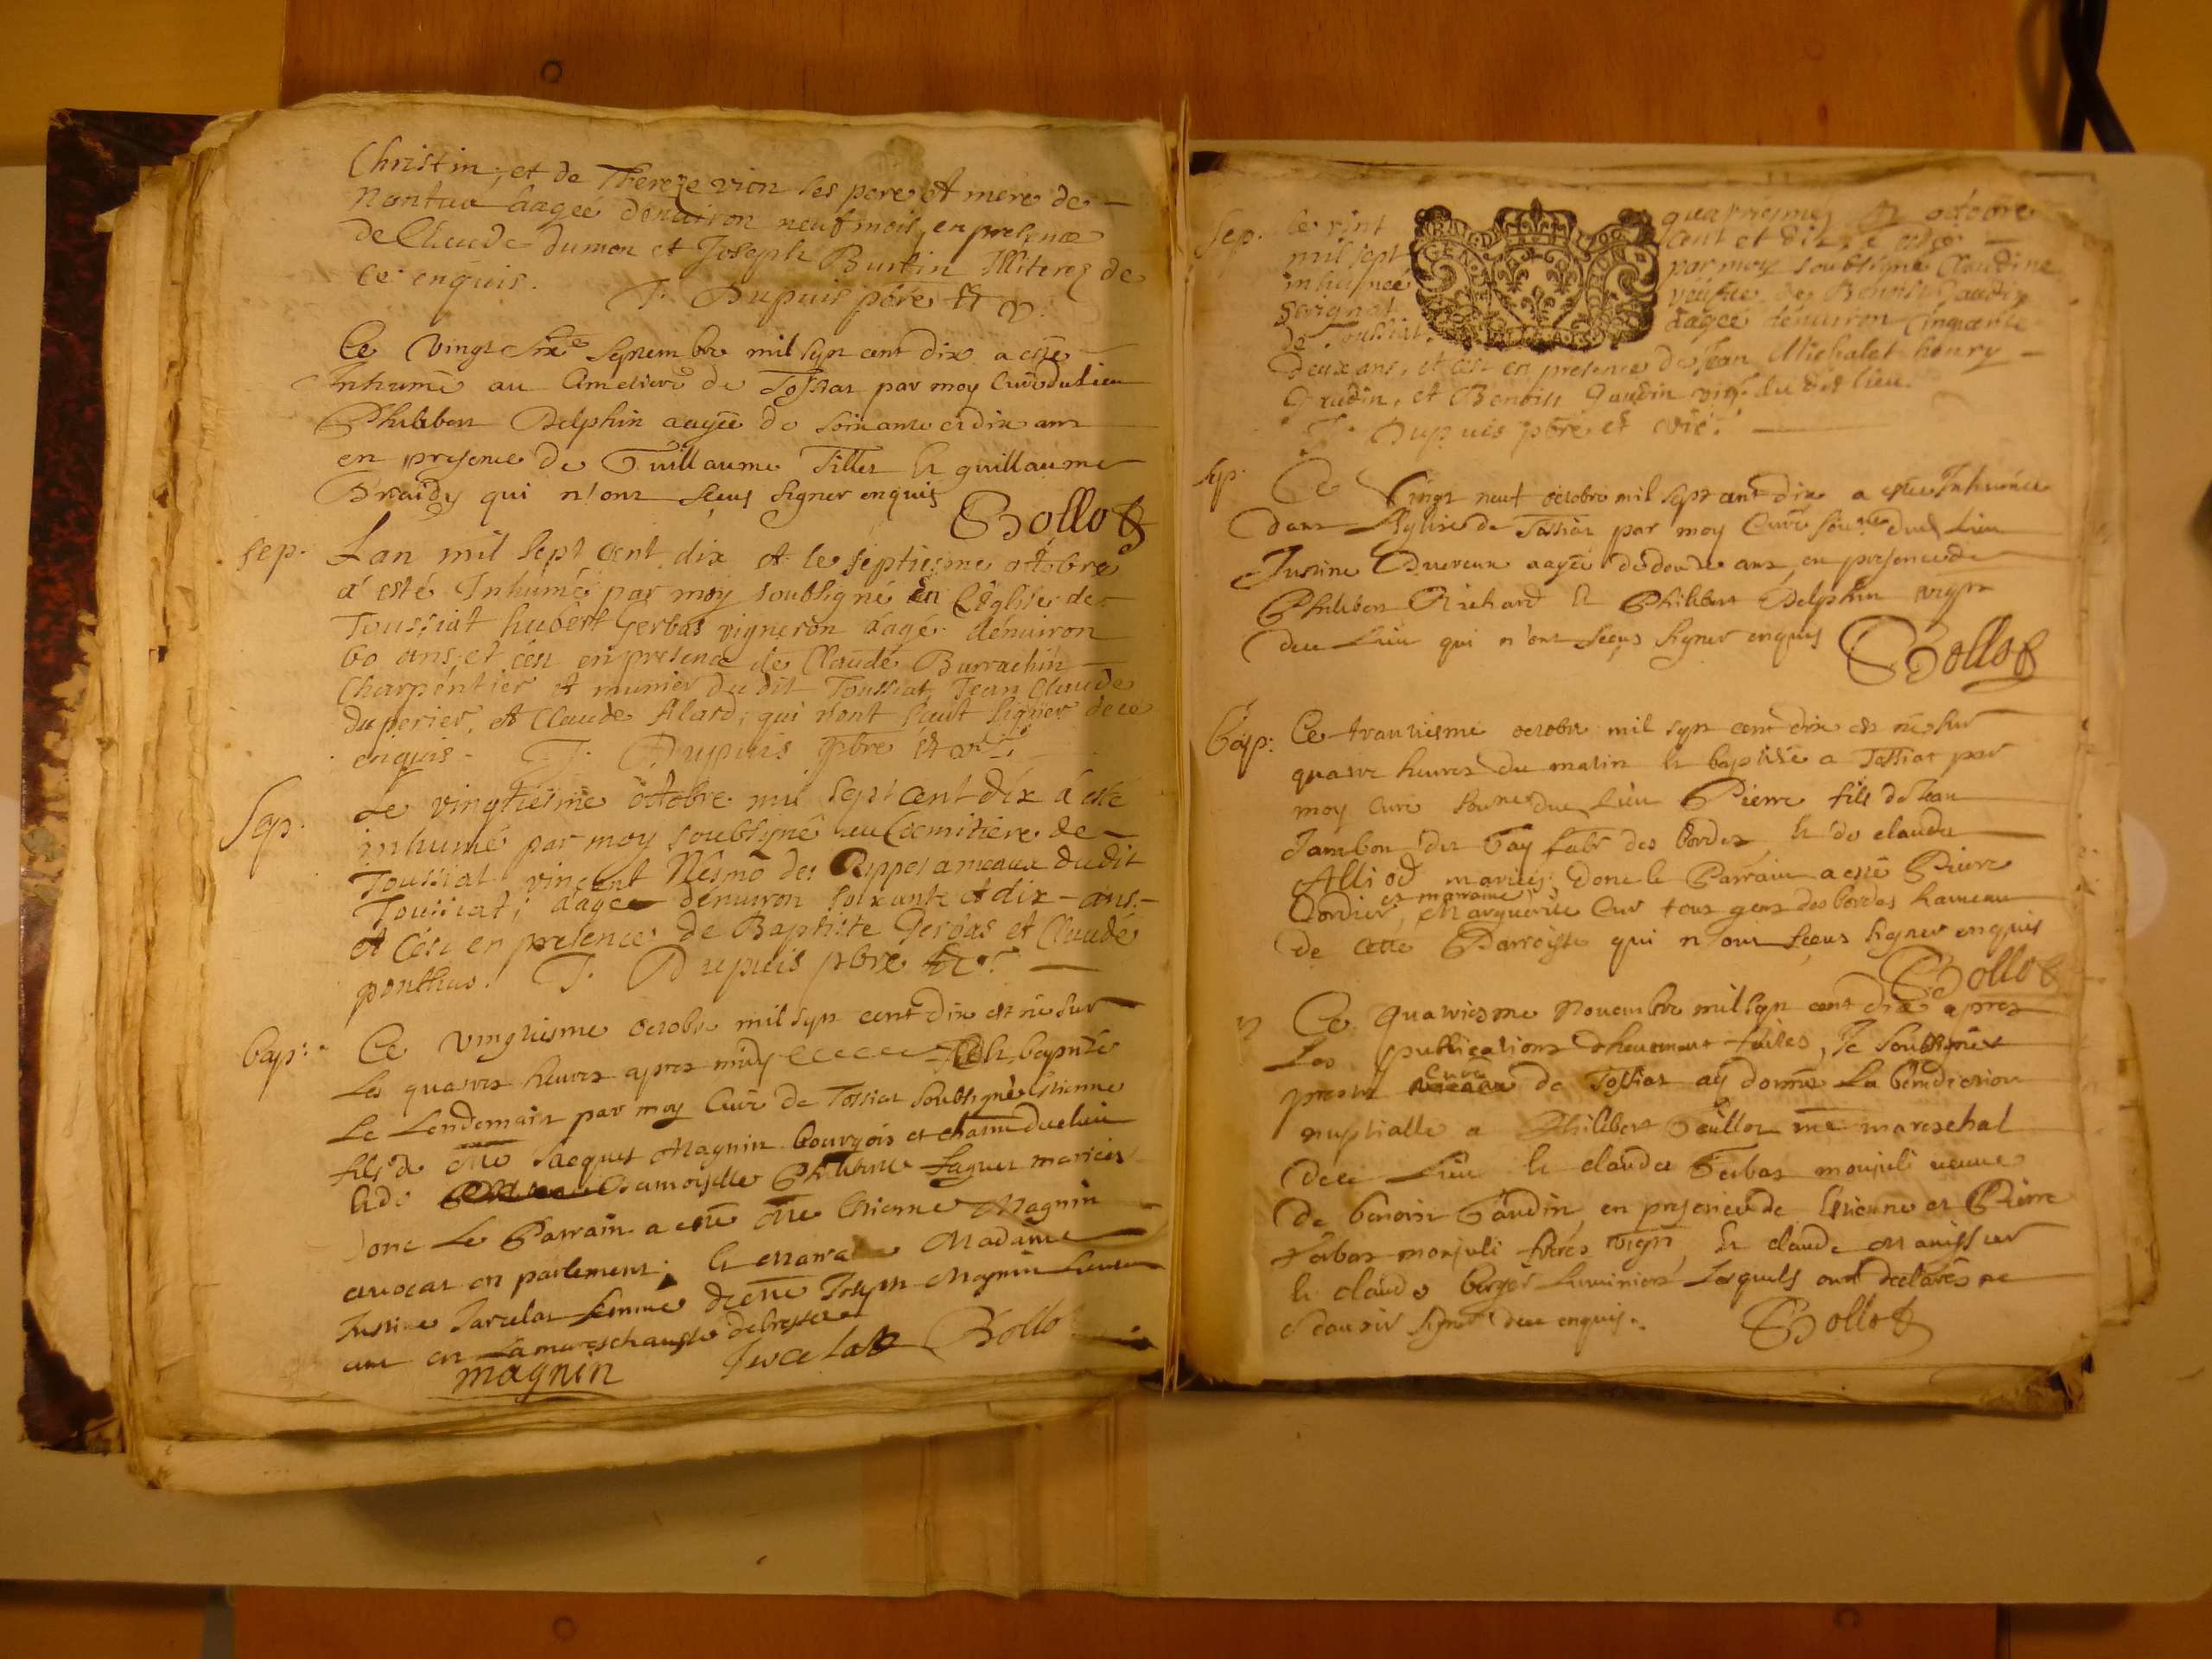 Christin, et de Thereze vion ses pere et mere de
Nantua aagée denuiron neuf mois, en presence
de Claude dumon et Joseph Burtin Illiterez de
ce enquis. J. Dupuis pbre et v.
Ce vingt six septembre mil sept cent dix a esté
Inhumé au Cimetiere de Tossiat par moy Curé du lieu
Philibert Delphin aagé de soixante et dix ans
en presence de Guillaume Tillet et guillaume
Braidy qui n'ont sceus signer enquis
Bollot
sep. Lan mil sept cent dix et le septiesme octobre
a esté Inhumé par moy soubsigné en l'Eglise de
Toussiat hubert Gerbas vigneron aagé denuiron
60 ans, et cest en presence de Claude Burrachin
Charpentier et munier dudit Toussiat, Jean Claude
duperier, et Claude Alard, qui n'ont sceut signer de ce
enquis. J. Dupuis pbre et vic.
Sep. Le vingtiesme octobre mil sept cent dix a esté
inhumé par moy soubsigné au Coemitiere de
Toussiat vincent Nesmo des Rippes ameaux dudit
Toussiat, aagé denuiron soixante et dix ans.
et cest en presence de Baptiste Gerbas et Claude
ponthus. J. Dupuis pbre et v.
bap: Ce vingtiesme octobre mil sept cent dix est né sur
les quatres heures apres midy et baptisé
le Lendemain par moy Curé de Tossiat soubsigné Estienne
fils de Me Jacques Magnin bourgois et du lieu
et de Damoiselle Philiberte Faguet mariés
donc le Parrain a esté Me Estienne Magnin
avocat en parlement, et marraine Madame
Justine Jarcelat femme de Me Joseph Magnin Lieuten
ant en La mareschaussée de bresse
magnin Jarcelat Bollot
Sep. le vint quatriesme octobre
mil sept cent et dix a esté
inhumée par moy soubsigné Claudine
Serignat veufue de Benoist Gaudin
de Toussiat, aagée denuiron Cinquante
deux ans, et cest en presence de Jean Michalet henry
Gaudin, et Benoist Gaudin vig. dudit lieu
J. Dupuis pbre et vic.
GEN. DE DIION
Sep. Ce vingt neuf octobre mil sept cent dix a estée Inhumée
dans Leglise de Tossiat par moy Curé soune dud Lieu
Justine Duereux aagée de douze ans, en presence de
Philibert Richard et Philibert Delphin vign
du Lieu qui n'ont sceus signer enquis
Bollot
Bap: Ce trantiesme octobre mil sept cent dix est né sur
quatre heures du matin et baptisé a Tossiat par
moy Curé soune du Lieu Pierre fils de Jean
Jambon dit Gay labr des bordes et de claude
Alliod mariés, donc le Parrain a esté Pierre
et marraine
Cordier, Marguerite Cur tous gens des bordes hameau
de cette Parroisse qui n'ont sceus signer enquis
Bollot
Ce quatriesme Novembre mil sept cent dix apres
Les publications dheuement faites, Je soubsigné
curé
prestre de Tossiat ay donné La benediction
nuptialle a Philibert Guillot me mareschal
du Lieu et claude Gerbas monjuli veuve
de benoist Gaudin, en presence de Estienne et Pierre
Gerbas monjuli freres vign, et claude Manissier
et claude berger Luminier Lesquels ont declarés ne
scavoir signer de ce enquis.
Bollot